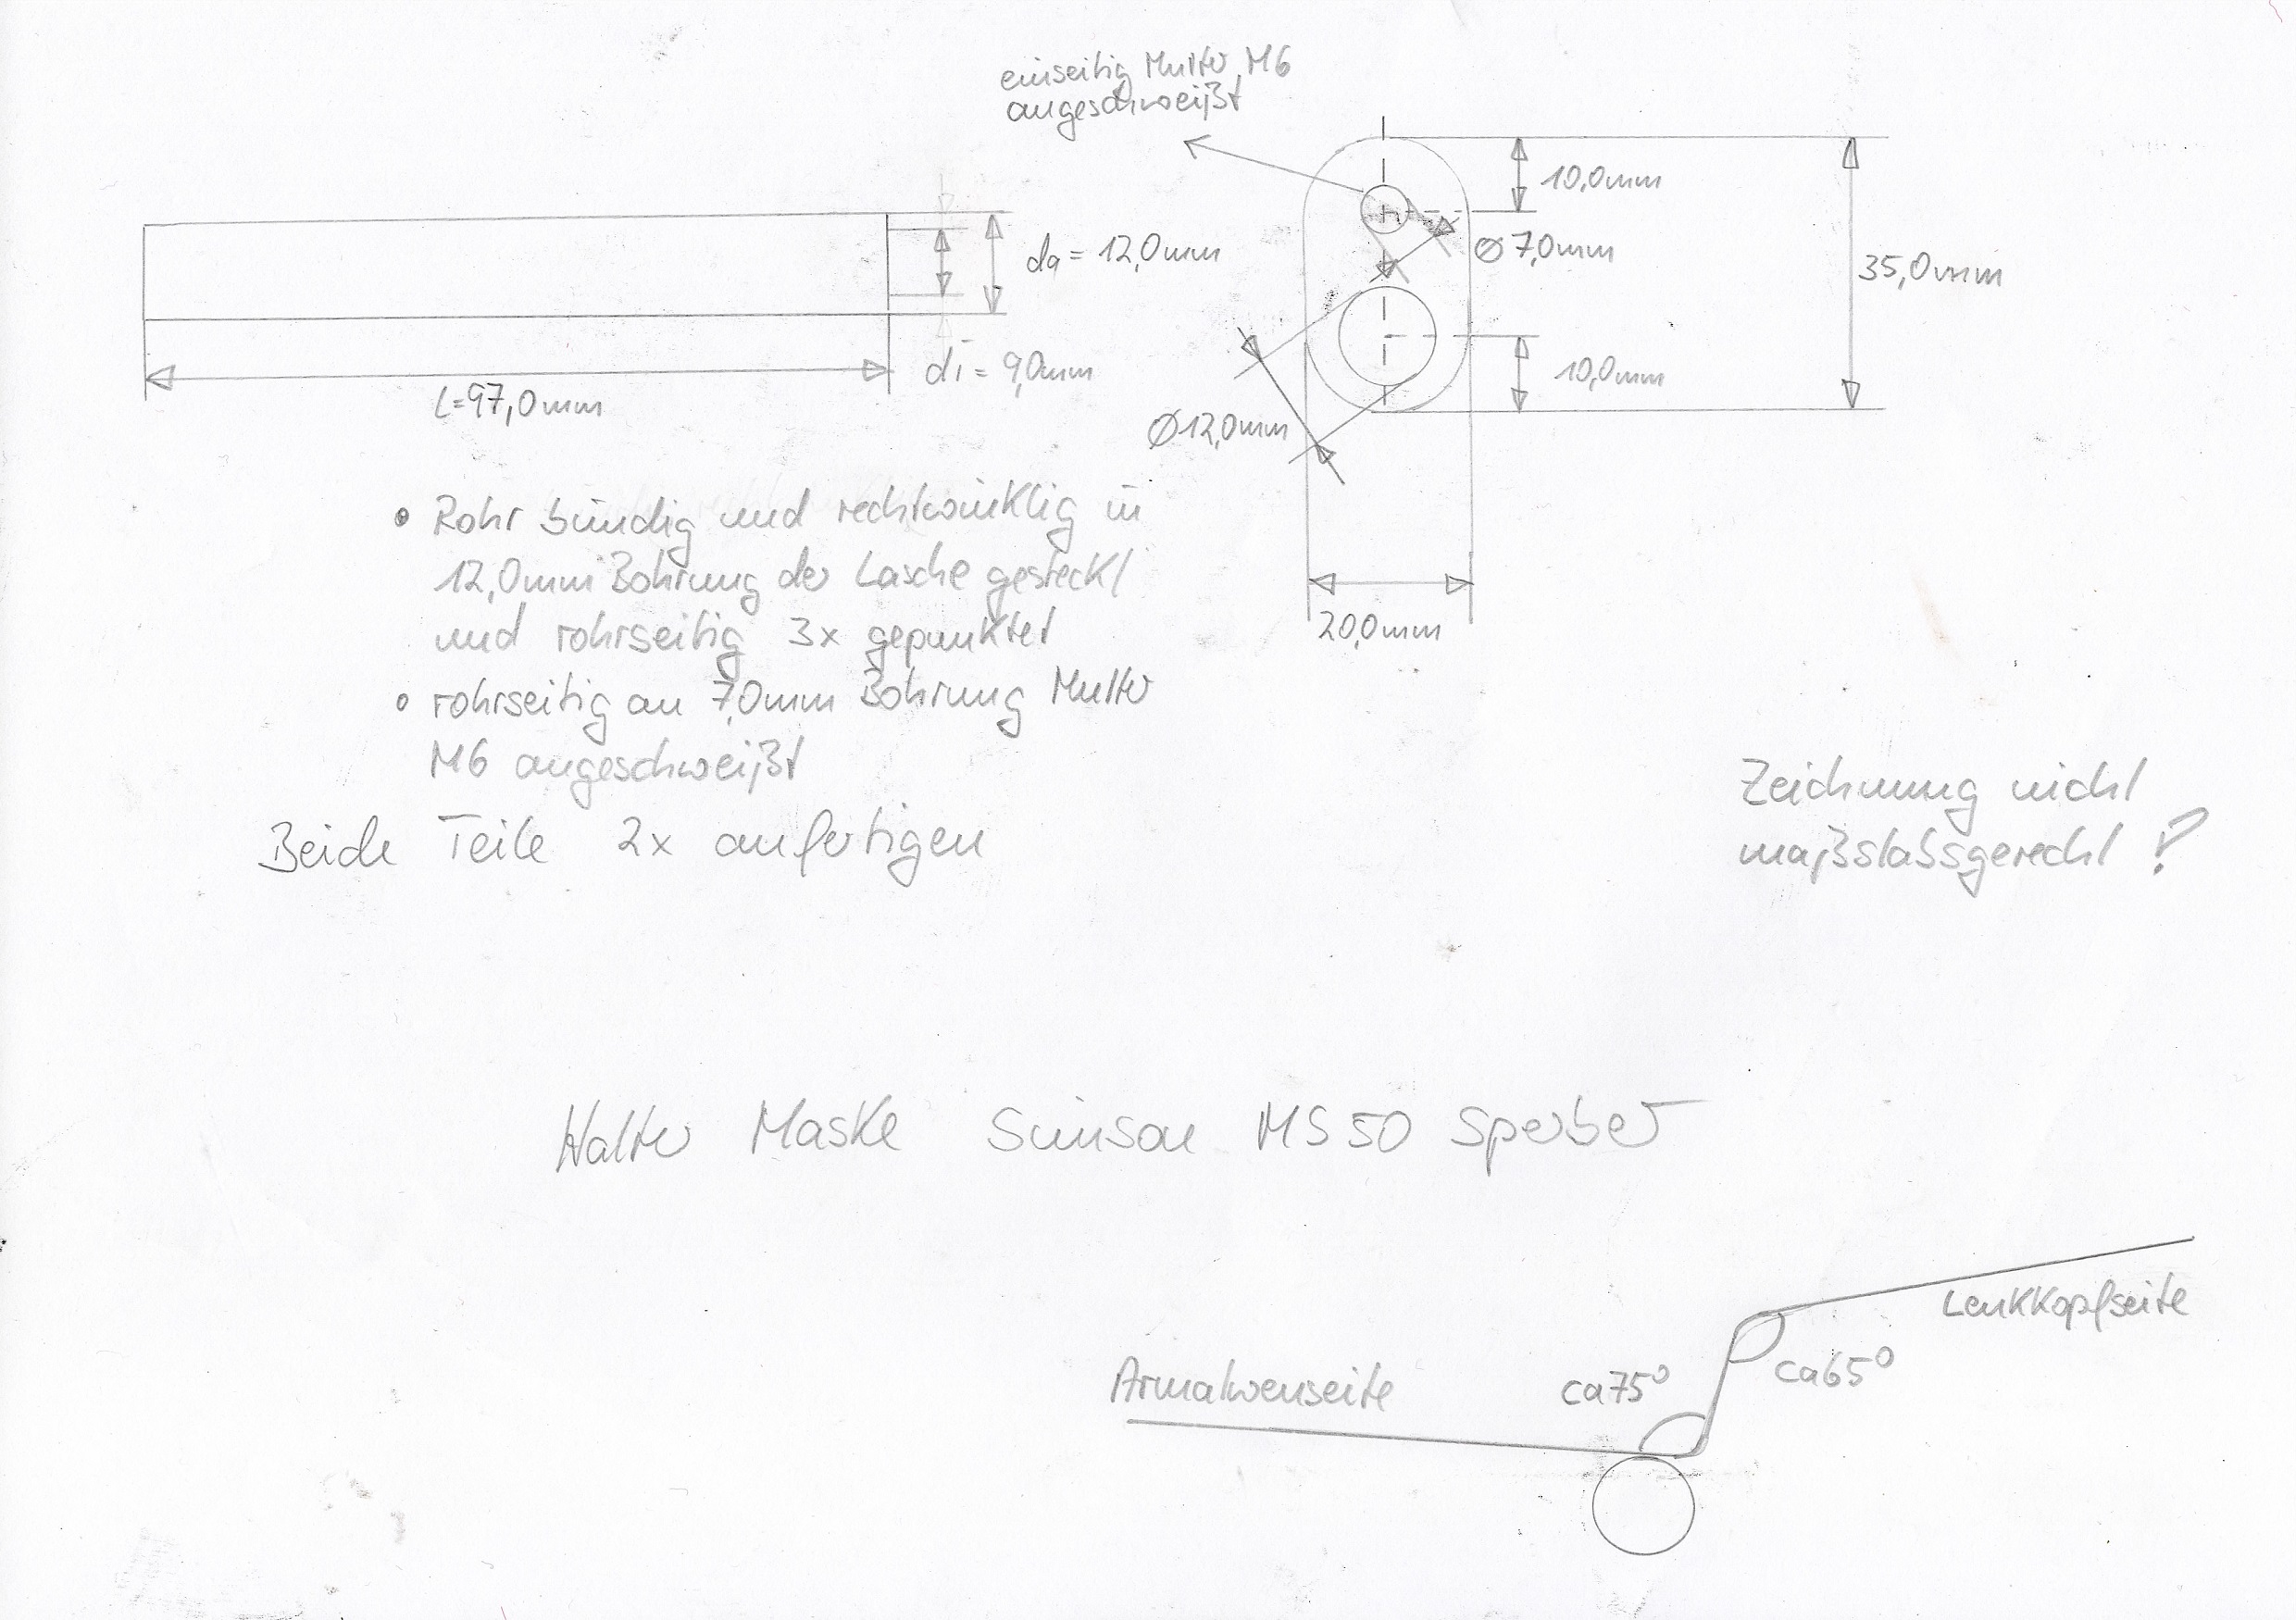 einseitig Mutter M6
angeschweißt
10,0mm
da = 12,0mm
Ø 7,0mm
35,0mm
di = 9,0mm
10,0mm
L=97,0mm
Ø12,0mm
• Rohr bündig und rechtwinklig in
12,0mm Bohrung der Lasche gesteckt
und rohrseitig 3x gepunktet
20,0mm
• rohrseitig an 7,0mm Bohrung Mutter
M6 angeschweißt
Zeichnung nicht
maßstabsgerecht !
Beide Teile 2x anfertigen
Halter Maske Simson MS 50 Sperber
Lenkkopfseite
ca 65°
ca 75°
Armaturenseite